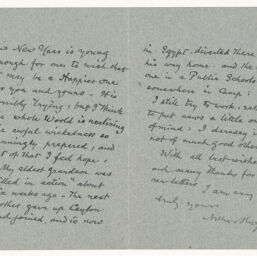 New Year is young
enough for one to wish that
may be a Happier one
for you and yours - It is
Trying; but I think
the whole World is realizing
the awful wickedness so
cunningly prepared, and
out of that I feel hope.
My eldest grandson was
"killed in action" about
six weeks ago - The next
brother gave up Ceylon
and joined, and is now
in Egypt - diverted there
his way home - and the
one in a Public Schools
"somewhere in Camp"!
I still try to work, rather
to put news a little one
of mind; I daresay is
not of much good other
With all best wishes
and many thanks for
newsletters I am every
truly yours
Arthur Hug